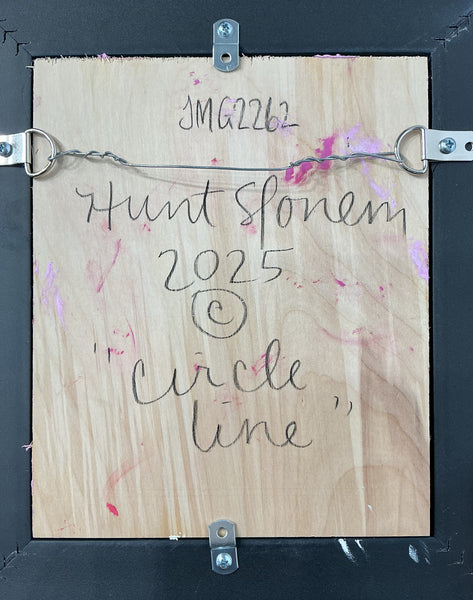 JMG2262
Hunt Slonem
2025
©
"circle
line"